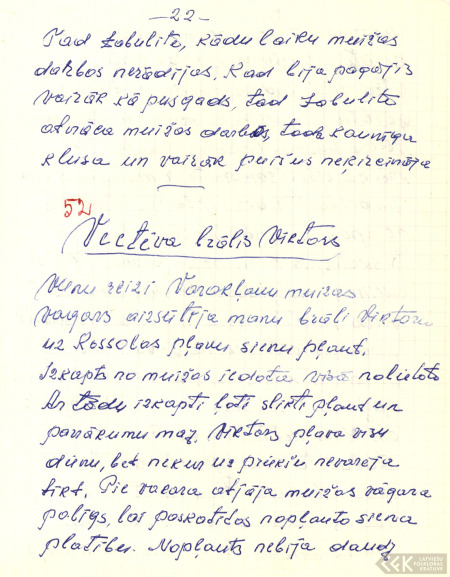 —22—
Tad Zabulite, kādu laiku muižas
darbos nerādijas. Kad bija pagājis
vairāk kā pusgads, tad Zabulite
atnāca muižas darbos, tāda kaunīga
klusa un vairāk puišus neķircināja
52
Vectēva brālis Viktors
Vienu reizi Varakļanu muižas
vagars aizsūtīja manu brāli Viktoru
uz Rossolas pļavu sienu pļaut.
Izkapts no muižas iedota visā nolietota
Ar tādu izkapti ļoti slikti pļaut un
panākumu maz. Viktors pļava visu
dienu, bet nekur uz priekšu nevarēja
tikt. Pie vacara atjāja muižas vāgara
palīgs, lai paskatītos nopļauto siena
platības. Nopļauts nebija daudz
LATVIEŠU
FOLKLORAS
KRĀTUVE